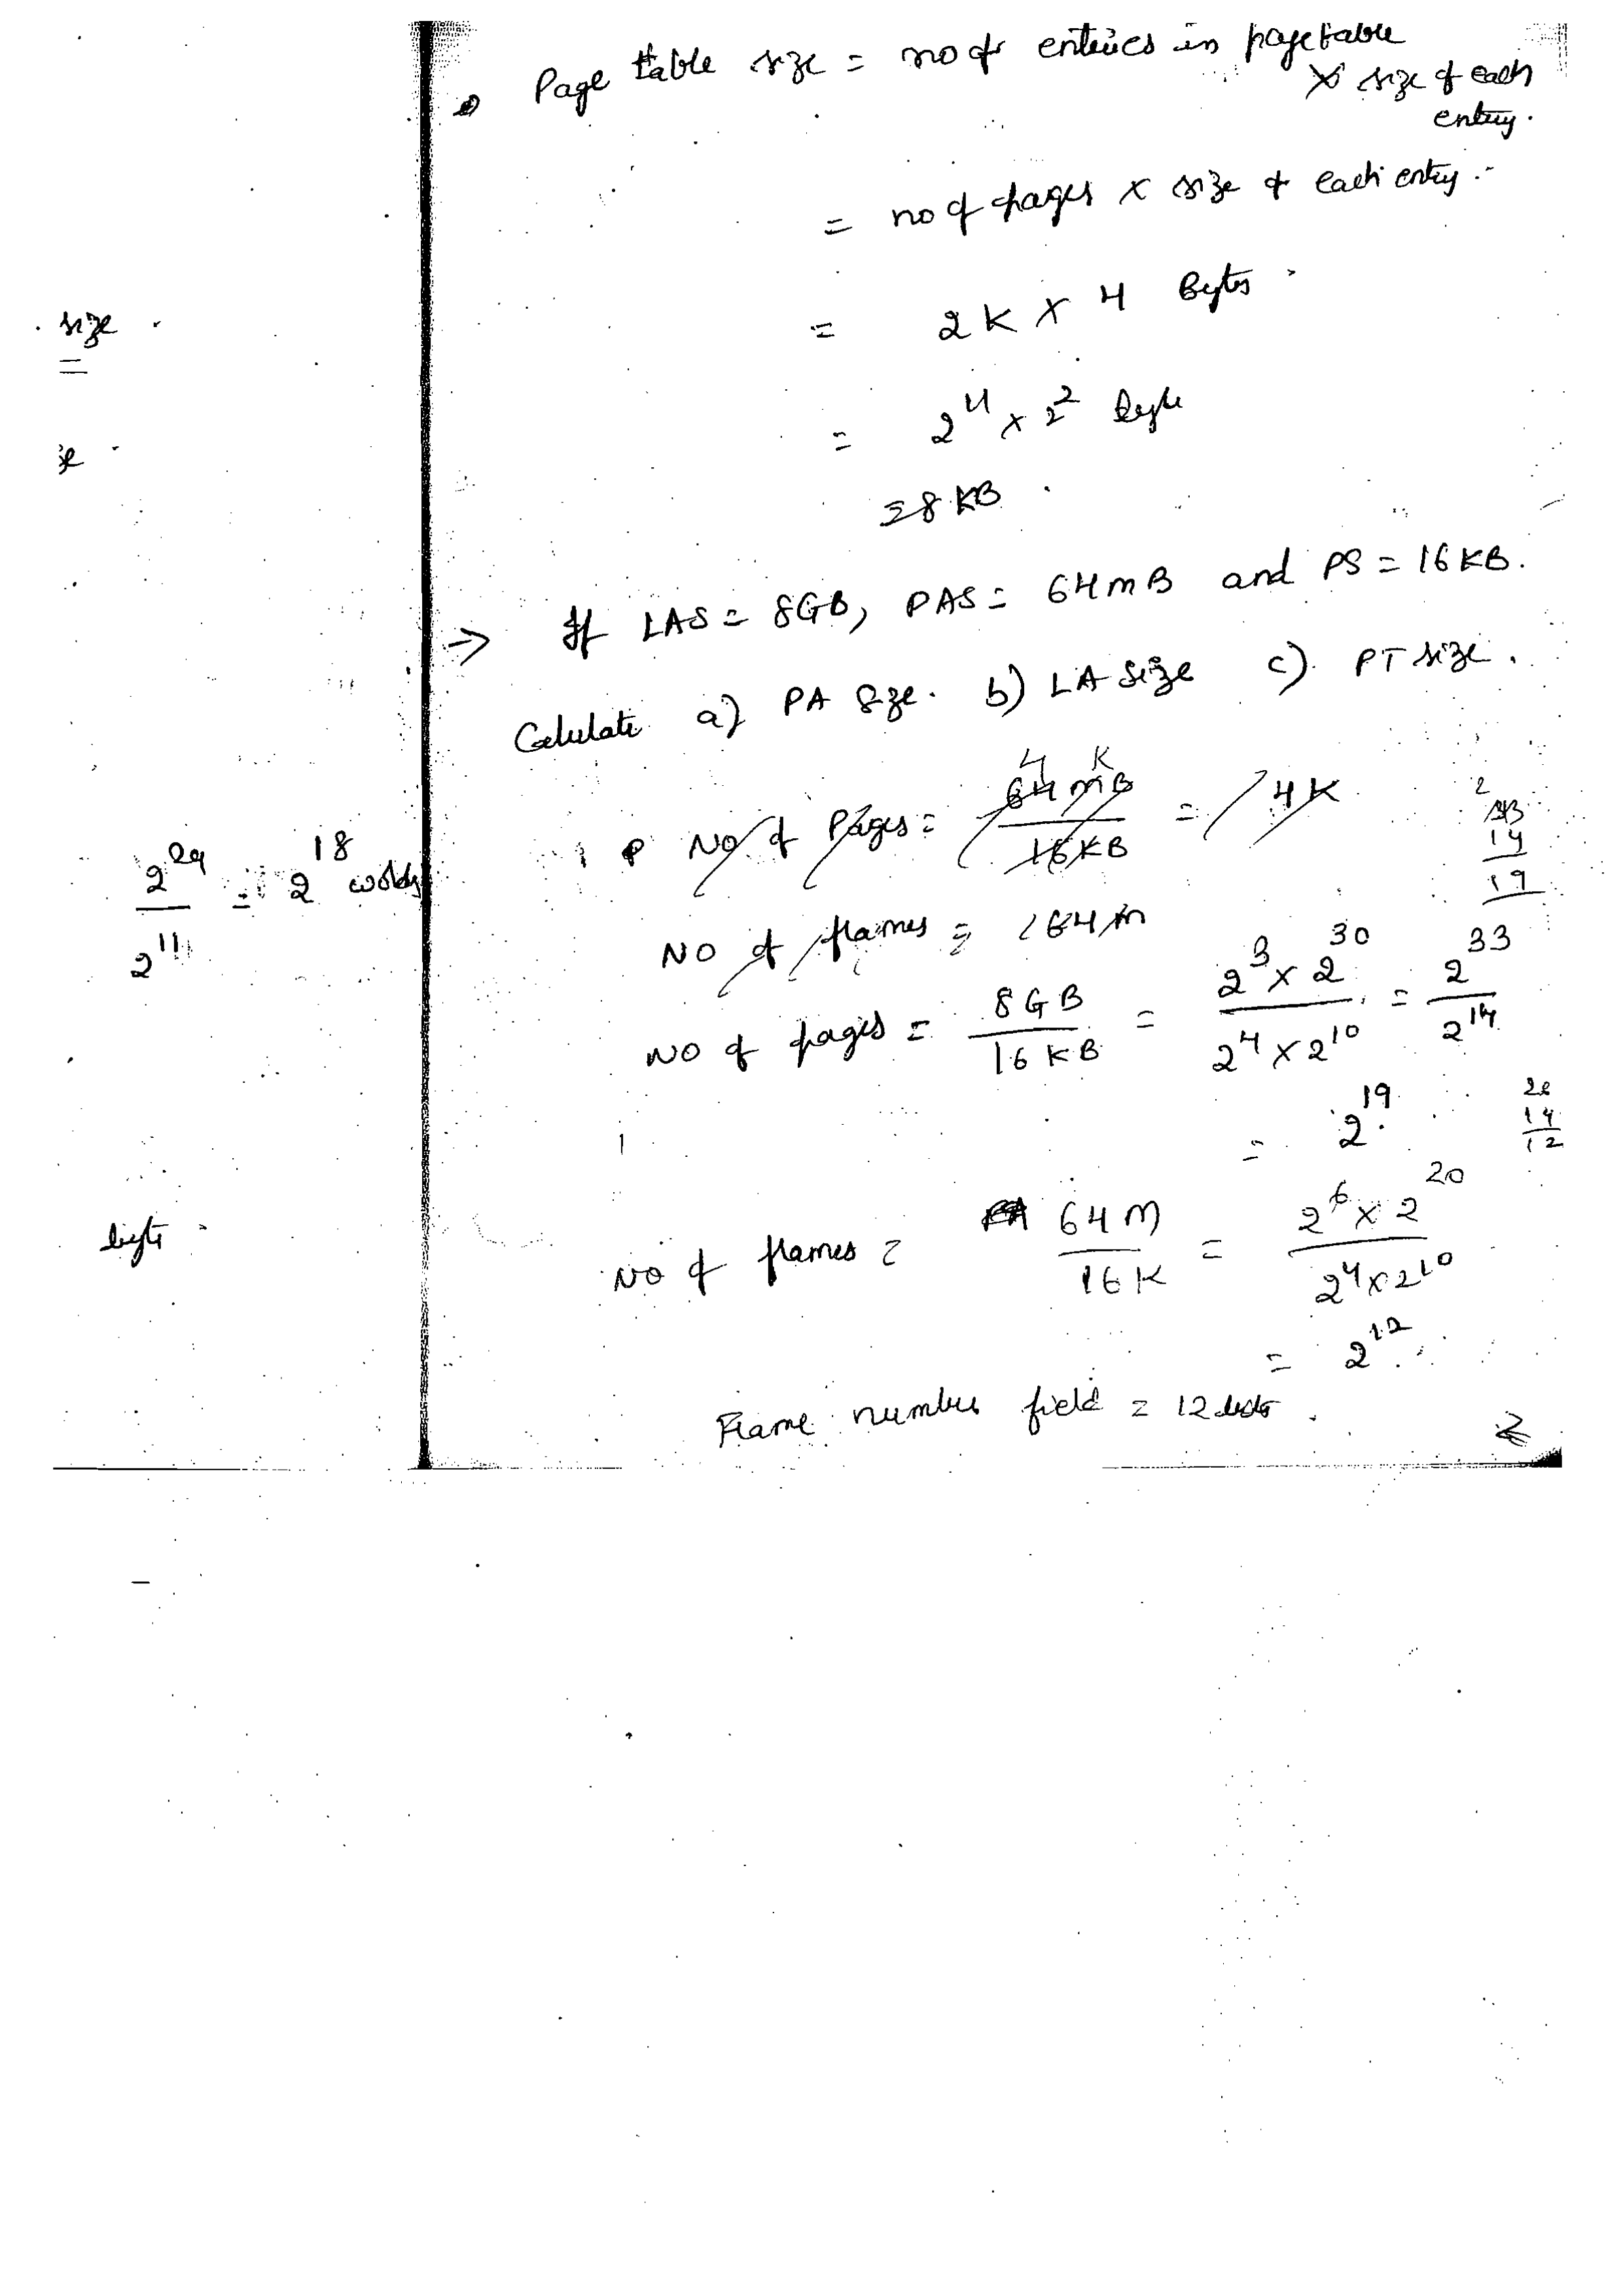 size
2^29 / 2^11 = 2^18 words
byte
Page table size = no of entries in page table
x size of each
entry.
= no of pages x size of each entry.
= 2K x 4 Bytes
= 2^11 x 2^2 byte
= 8 KB
→ If LAS = 8GB, PAS = 64MB and PS = 16KB.
Calulate a) PA Size. b) LA Size c) PT size.
No of Pages = 64MB / 16KB = 4K
4 K
33
14
19
No of frames = 64M
No of pages = 8GB / 16KB = 2^3 x 2^30 / 2^4 x 2^10 = 2^33 / 2^14
= 2^19
26
14
12
No of frames = 64M / 16K = 2^6 x 2^20 / 2^4 x 2^10
= 2^12
Frame number field = 12 bits.